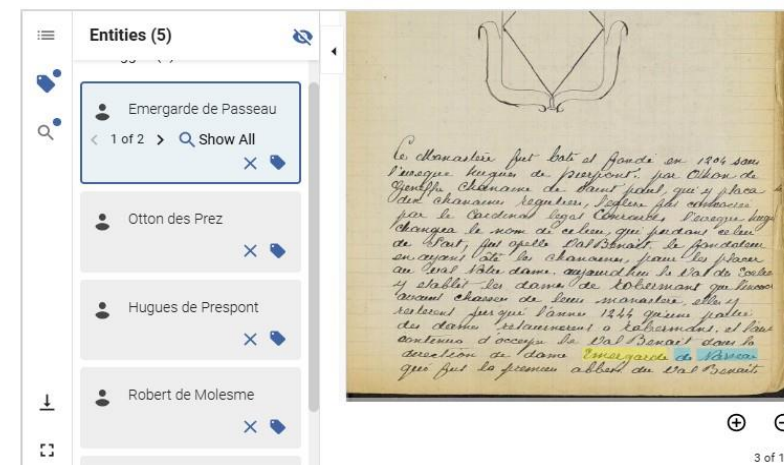 Entities (5)
Emergarde de Passeau
1 of 2 Show All
Otton des Prez
Hugues de Prespont
Robert de Molesme
Ce Monastère fut bati et fondé en 1204 sous
l'eveque hugues de pierpont. par Othon de
Geneffe Chanoine de saint paul, qui y plaça
des chanoines reguliers, l'eglise fut consacrée
par le Cardinal legat l'eveque hugu
changea le nom de celieu, qui perdans celui
de fut apelle Val Benoit. le fondateur
en ayant oté les chanoines, pour les placer
au Val Notre dame. aujourd'hui le Val des Ecolier
y etablit les dames de Robermont que
avoient chassées de leur monastère, elles y
resterent jusqu'à l'année 1244 qu'une partie
des dames retournerent a Robermont, et l'aut
continua d'occuper le Val Benoit sous la
direction de dame Emergarde de
qui fut la premiere abbesse du Val Benoit
3 of 1